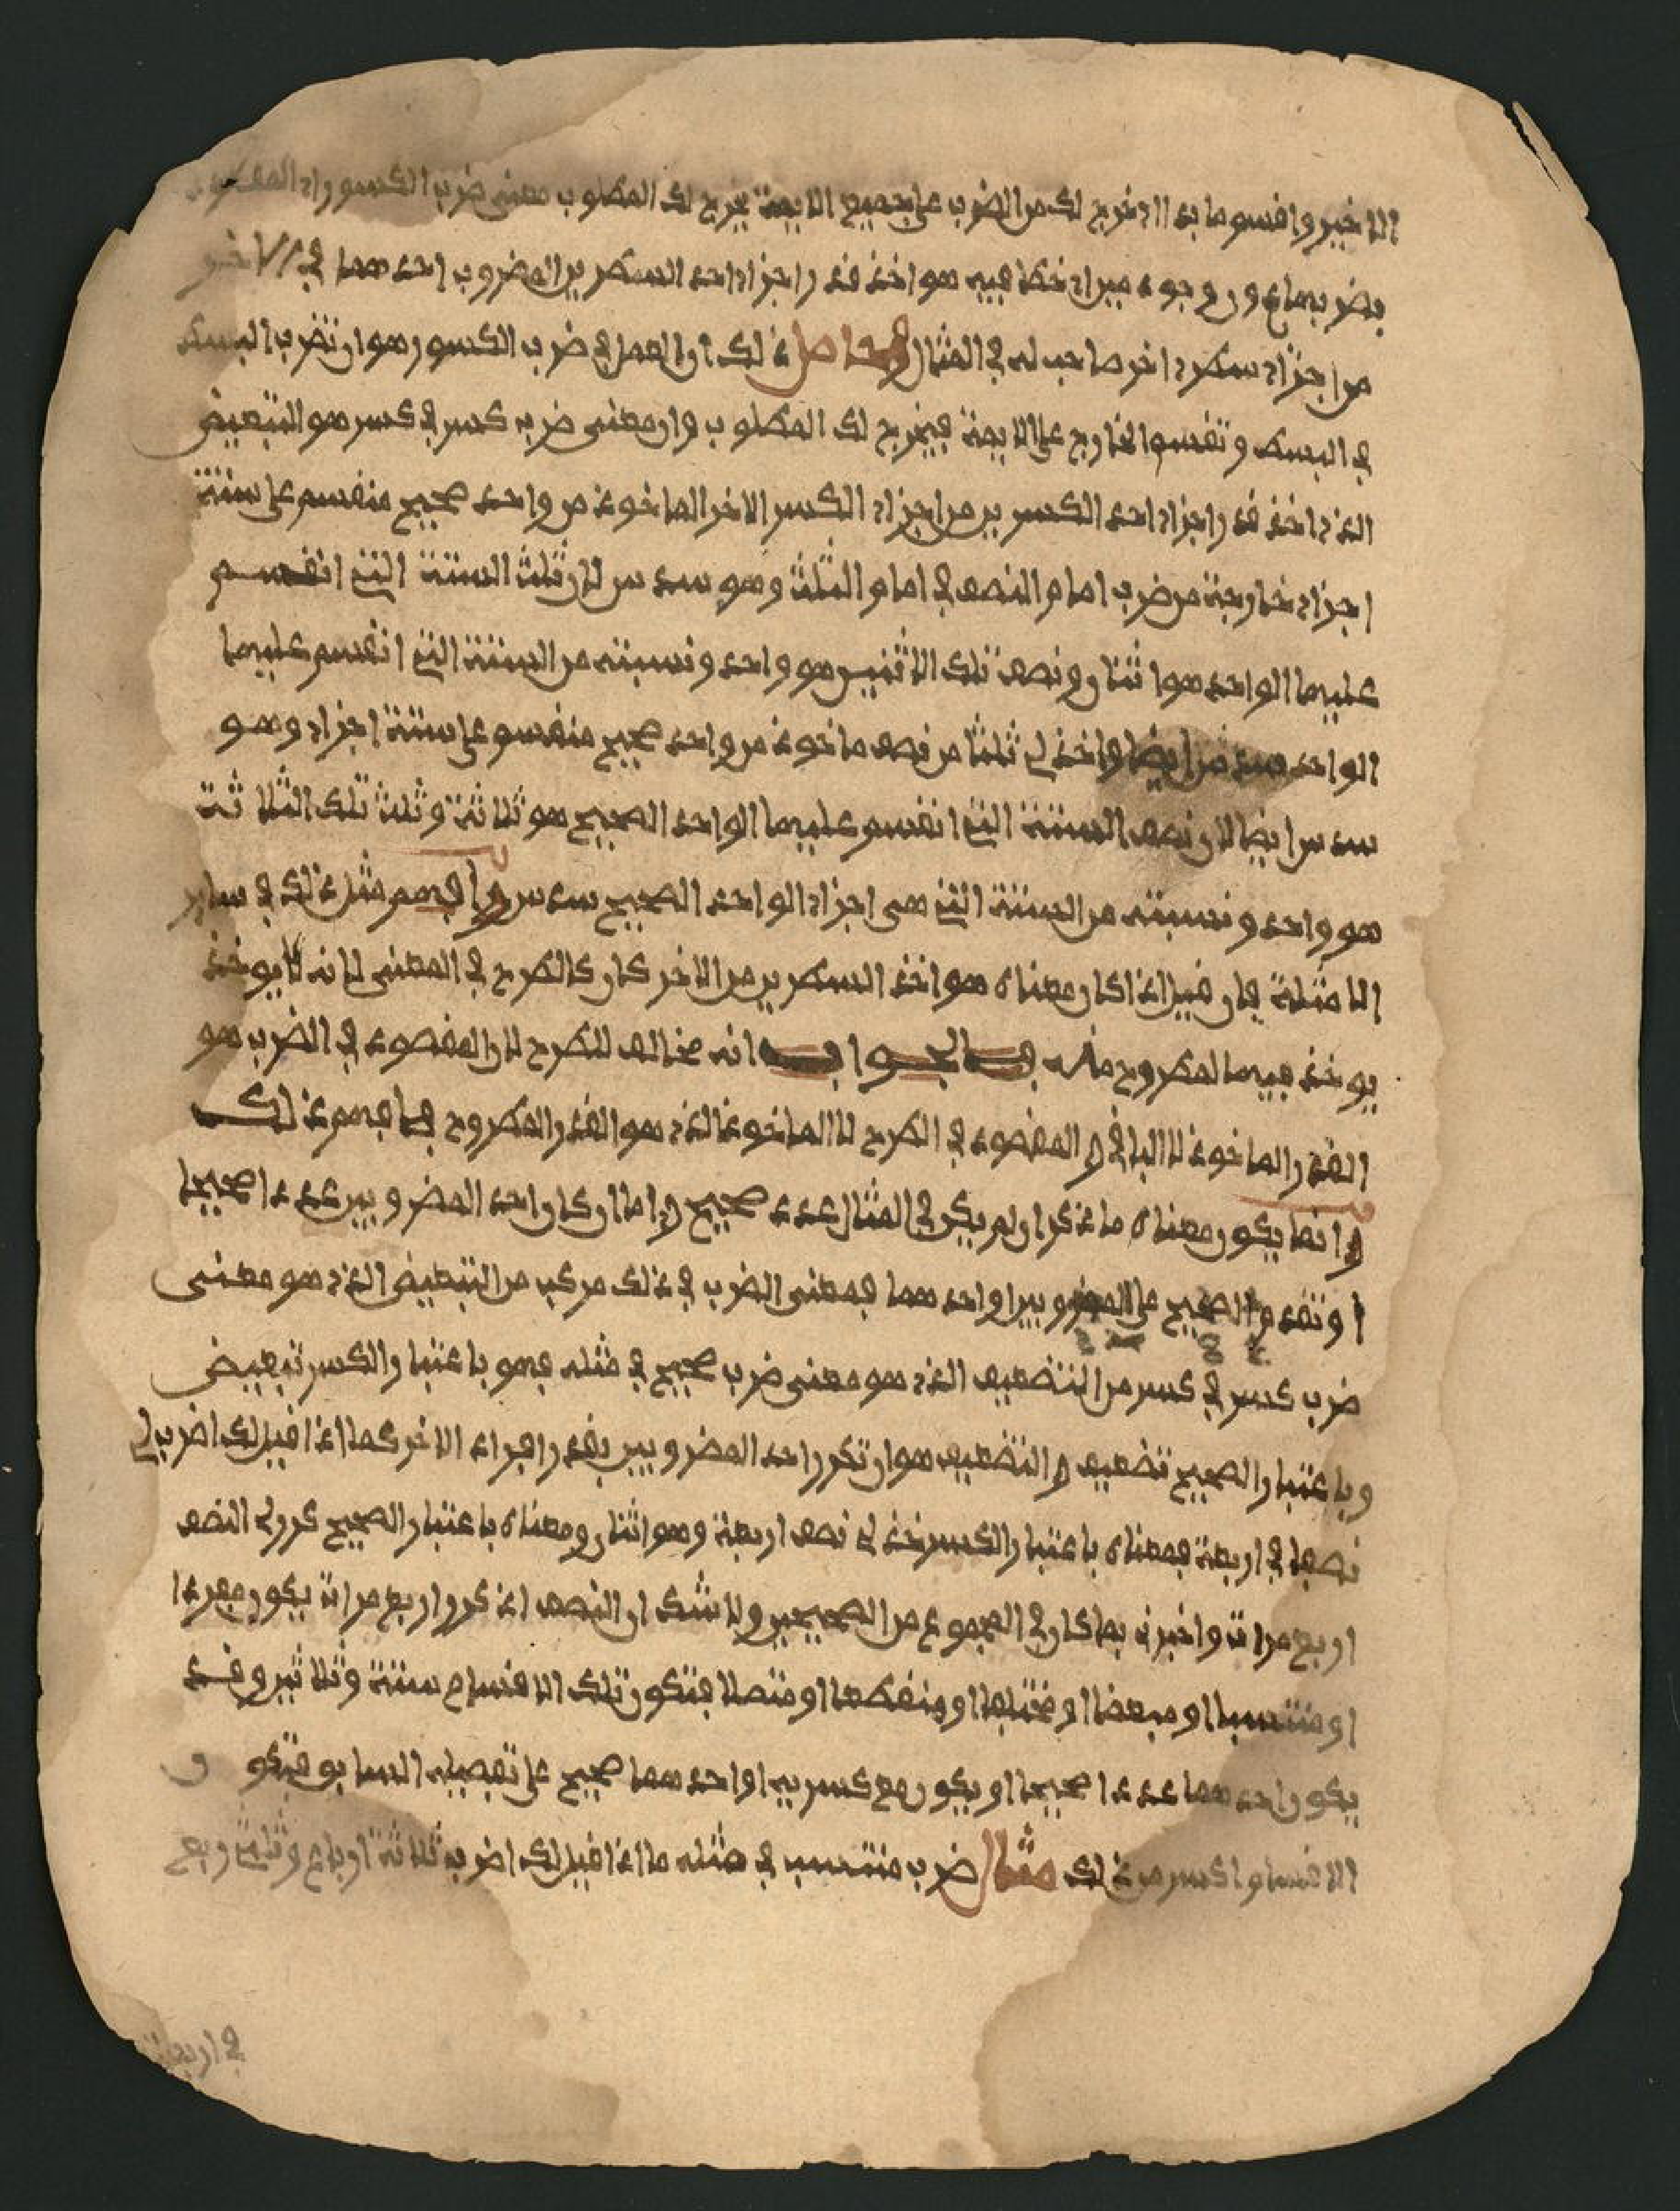 الاخير واقسم ما بدا الخارج لك من الضرب على جميع الايمة يخرج لك المطلوب معنى ضرب الكسور
يضرب هو اخذ قدر اجزاء احد السطرين المضروب احدهما في الاخر
من اجزاء سطر الاخر صاحب له في المثال الحاصل ذلك ان العمل في ضرب الكسور هو ان تضرب البسط
في البسط وتقسم الخارج على الايمة فيخرج لك المطلوب وان معنى ضرب كسر في كسر هو التبعيض
الذي اخذ قدر اجزاء احد الكسرين من اجزاء الكسر الاخر الماخوذ من واحد صحيح منقسم على ستة
اجزاء خارجة من ضرب امام النصف في امام الثلث وهو سدس لان ثلث الستة التي انقسم
عليها الواحد هو اثنان ونصف تلك الاثنين هو واحد ونسبته من الستة التي انقسم عليها
الواحد سدس ايضا واخذ لي ثلثا من نصف ماخوذ من واحد صحيح منقسم على ستة اجزاء وهو
سدس ايضا لان نصف الستة التي انقسم عليها الواحد الصحيح هو ثلاثة وثلث تلك الثلاثة
هو واحد ونسبته من الستة التي هي اجزاء الواحد الصحيح سدس وافهم مثل ذلك في ساير
الامثلة فان قيل اذا كان معناه هو اخذ السطرين من الاخر كان كالطرح في المعنى لانه لا يوخذ
يوخذ فيها المطروح منه فالجواب انه مخالف للطرح لان المقصود في الضرب هو
القدر الماخوذ لا الباقي والمقصود في الطرح لا الماخوذ الذي هو القدر المطروح فافهم ذلك
وانما يكون معناه ما ذكر ان لم يكن في المثال عدد صحيح واما ان كان احد المضروبين عددا صحيحا
او تقدم الصحيح على المضروبين او احدهما فمعنى الضرب في ذلك مركب من التبعيض الذي هو معنى
ضرب كسر في كسر من التضعيف الذي هو معنى ضرب صحيح في مثله فهو باعتبار الكسر تبعيض
وباعتبار الصحيح تضعيف والتضعيف هو ان تكرر احد المضروبين بقدر افراد الاخر كما اذا قيل لك اضرب لي
نصفا في اربعة فمعناه باعتبار الكسر خذ لي نصف اربعة وهو اثنان ومعناه باعتبار الصحيح كرر لي النصف
اربع مرات واخبرني بما كان في المجموع من الصحيحين ولا شك ان النصف اذا كرر اربع مرات يكون
او منتسبا او مبعضا او مختلفا او منقطعا او متصلا فتكون تلك الاقسام ستة وثلاثين وقد
يكون احدهما عددا صحيحا او يكون مع كسريه او احدهما صحيح على تفصيله السابق فتكون
الاقسام اكثر من ذلك مثال ضرب منتسب في مثله ما اذا قيل لك اضرب ثلاثة ارباع وثلث ربع
في اربعة